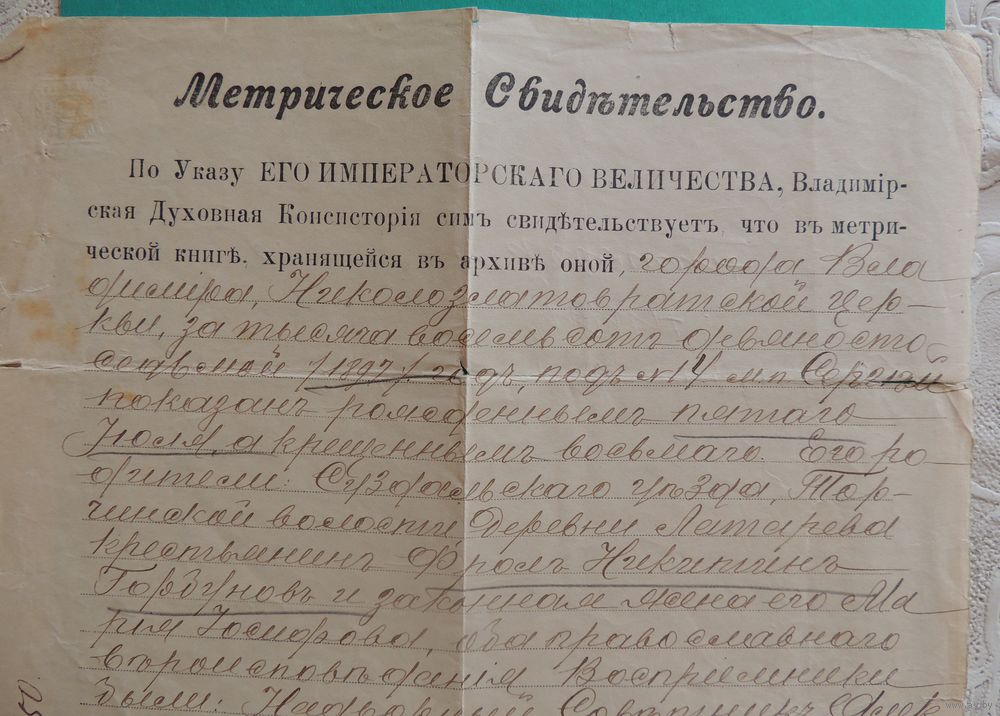 Метрическое Свидѣтельство.
По Указу ЕГО ИМПЕРАТОРСКАГО ВЕЛИЧЕСТВА, Владимір-
ская Духовная Консисторія симъ свидѣтельствуетъ, что въ метри-
ческой книгѣ, хранящейся въ архивѣ оной, города Вла
диміра, Николозлатовратской цер-
кви, за тысяча восемьсотъ девяносто
седьмой /1897/ годъ, подъ № 4 м.п. Сергѣй
показанъ рожденнымъ пятаго
Іюля, а крещеннымъ восьмаго. Его ро-
дители: Суздальскаго уѣзда, Тор-
чинской волости, деревни Латарева
крестьянинъ Фролъ Никитинъ
Горбуновъ и законная жена его Ма
рія Іосифова, оба православнаго
вѣроисповѣданія Воспріемники
были: Надворный Совѣтникъ
www.ay.by